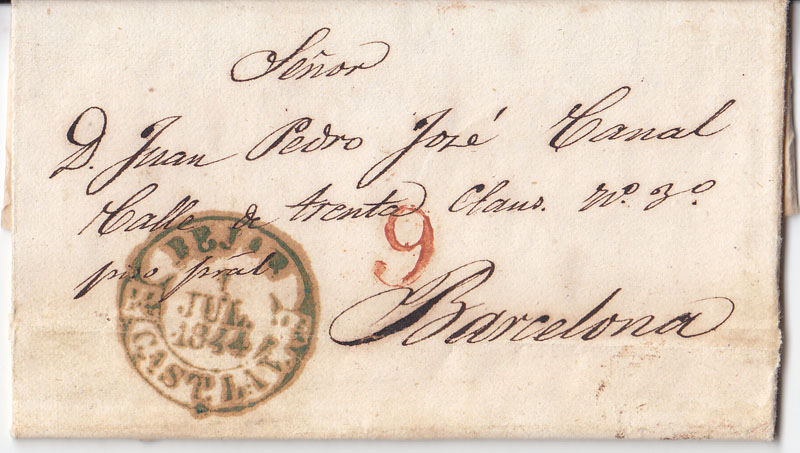 Señor
D. Juan Pedro José Canal
Calle de trenta Claus. Nº. 3º
piso pral
9
Barcelona
BEJAR
JUL.
1844
CAST. LA V.